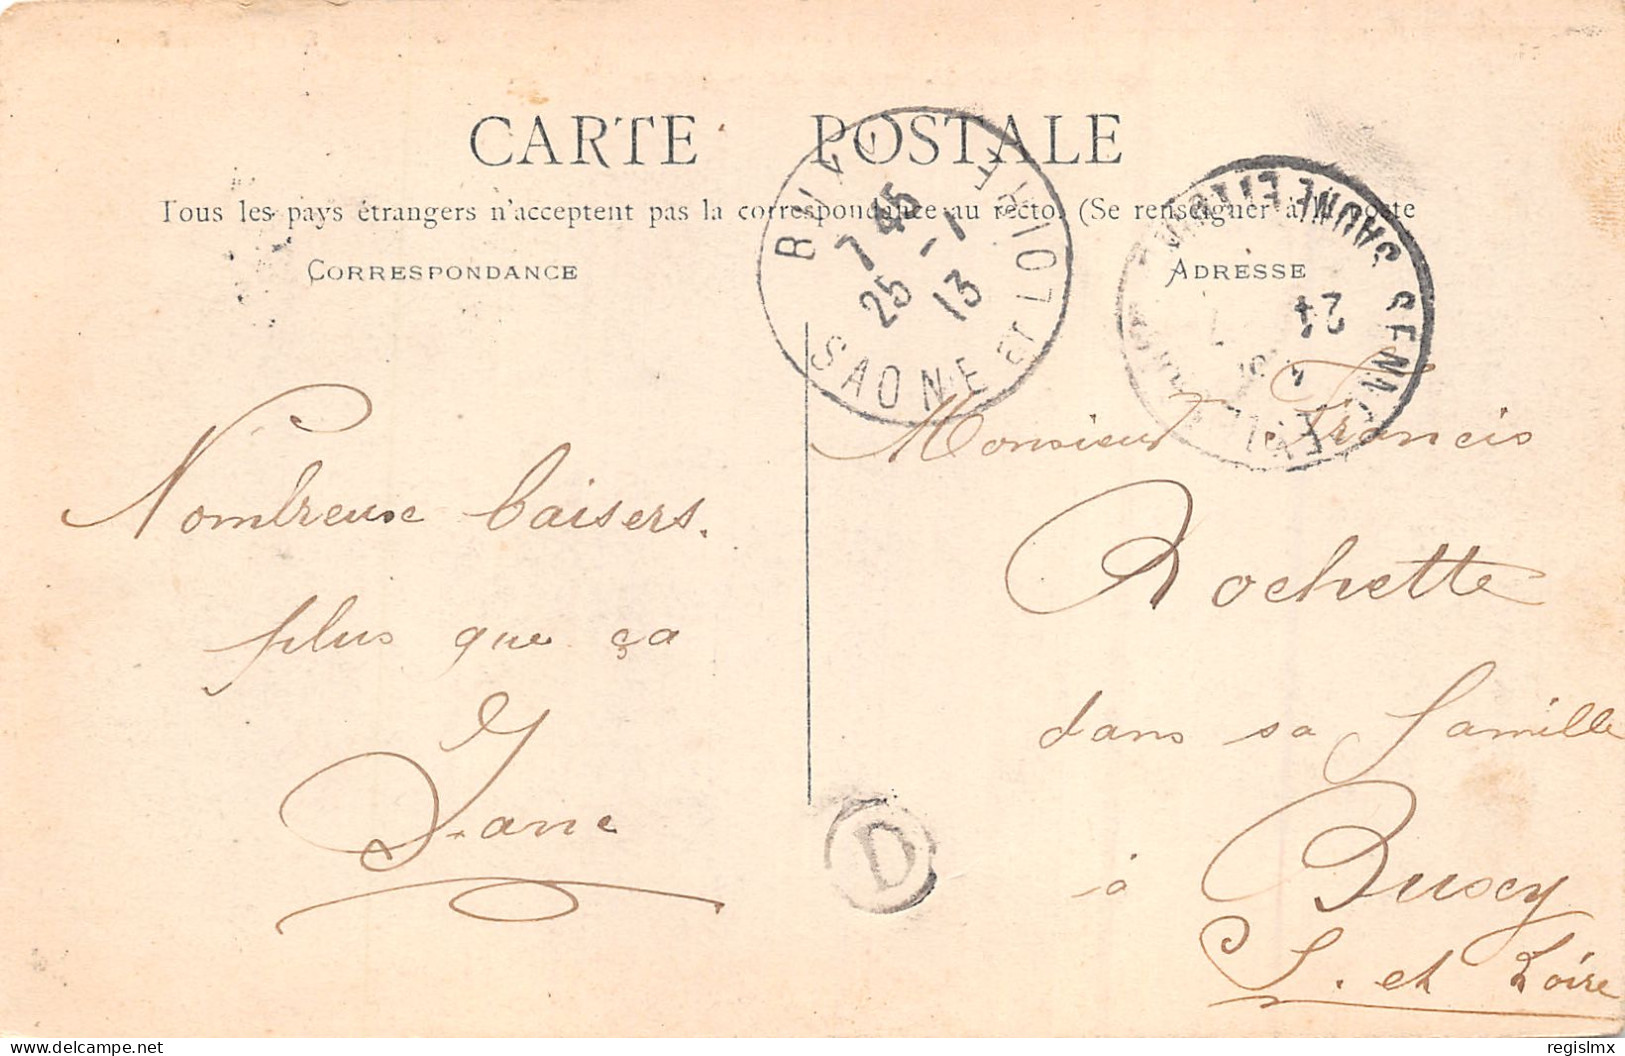 CARTE POSTALE
Tous les pays étrangers n'acceptent pas la correspondance au recto. (Se renseigner à la poste
CORRESPONDANCE
ADRESSE
7 45
25 -1
13
SAONE ET LOIRE
SAONE ET LOIRE
SENNECEY
21
Nombreuse baisers.
plus que ça
Jane
Monsieur Francis
Rochette
dans sa famille
à Buxy
S. et Loire
D
delcampe.net
regislmx